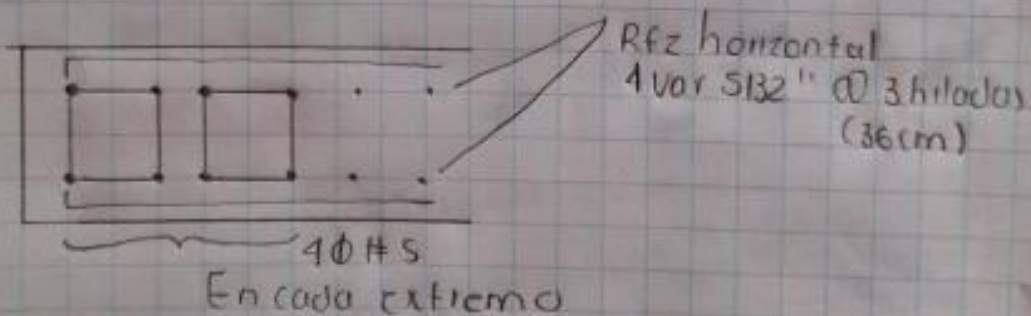 Rfz horizontal
1 var 5/32" @ 3 hiladas
(36cm)
4 Ø # 5
En cada extremo